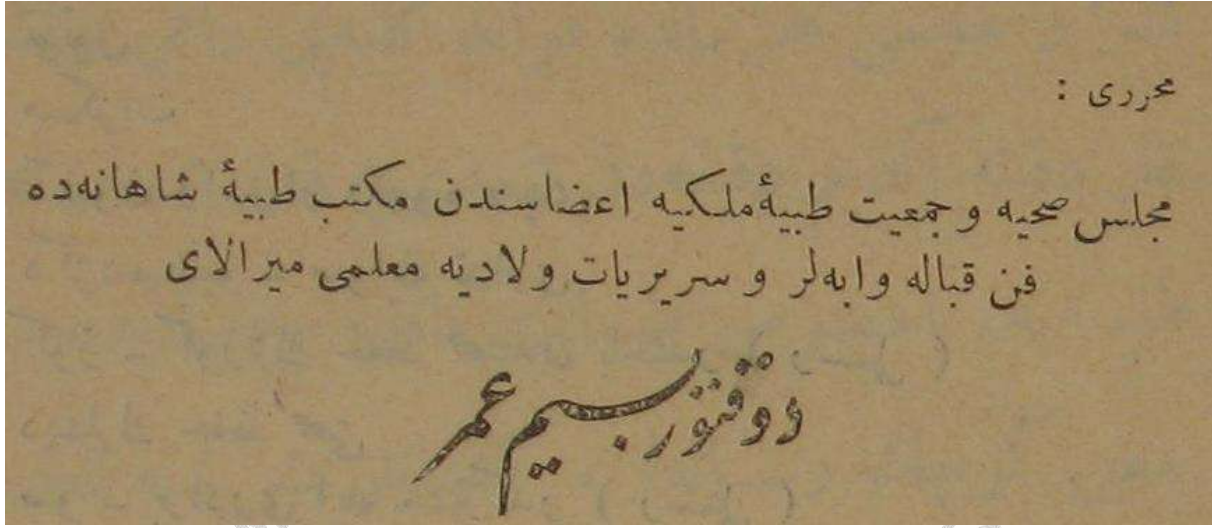 محرری :
مجلس صحیه و جمعیت طبیهٔ ملکیه اعضاسندن مکتب طبیهٔ شاهانه‌ده
فن قباله و ابه‌لر و سریریات ولادیه معلمی میرالای
دوقتور بسیم عمر